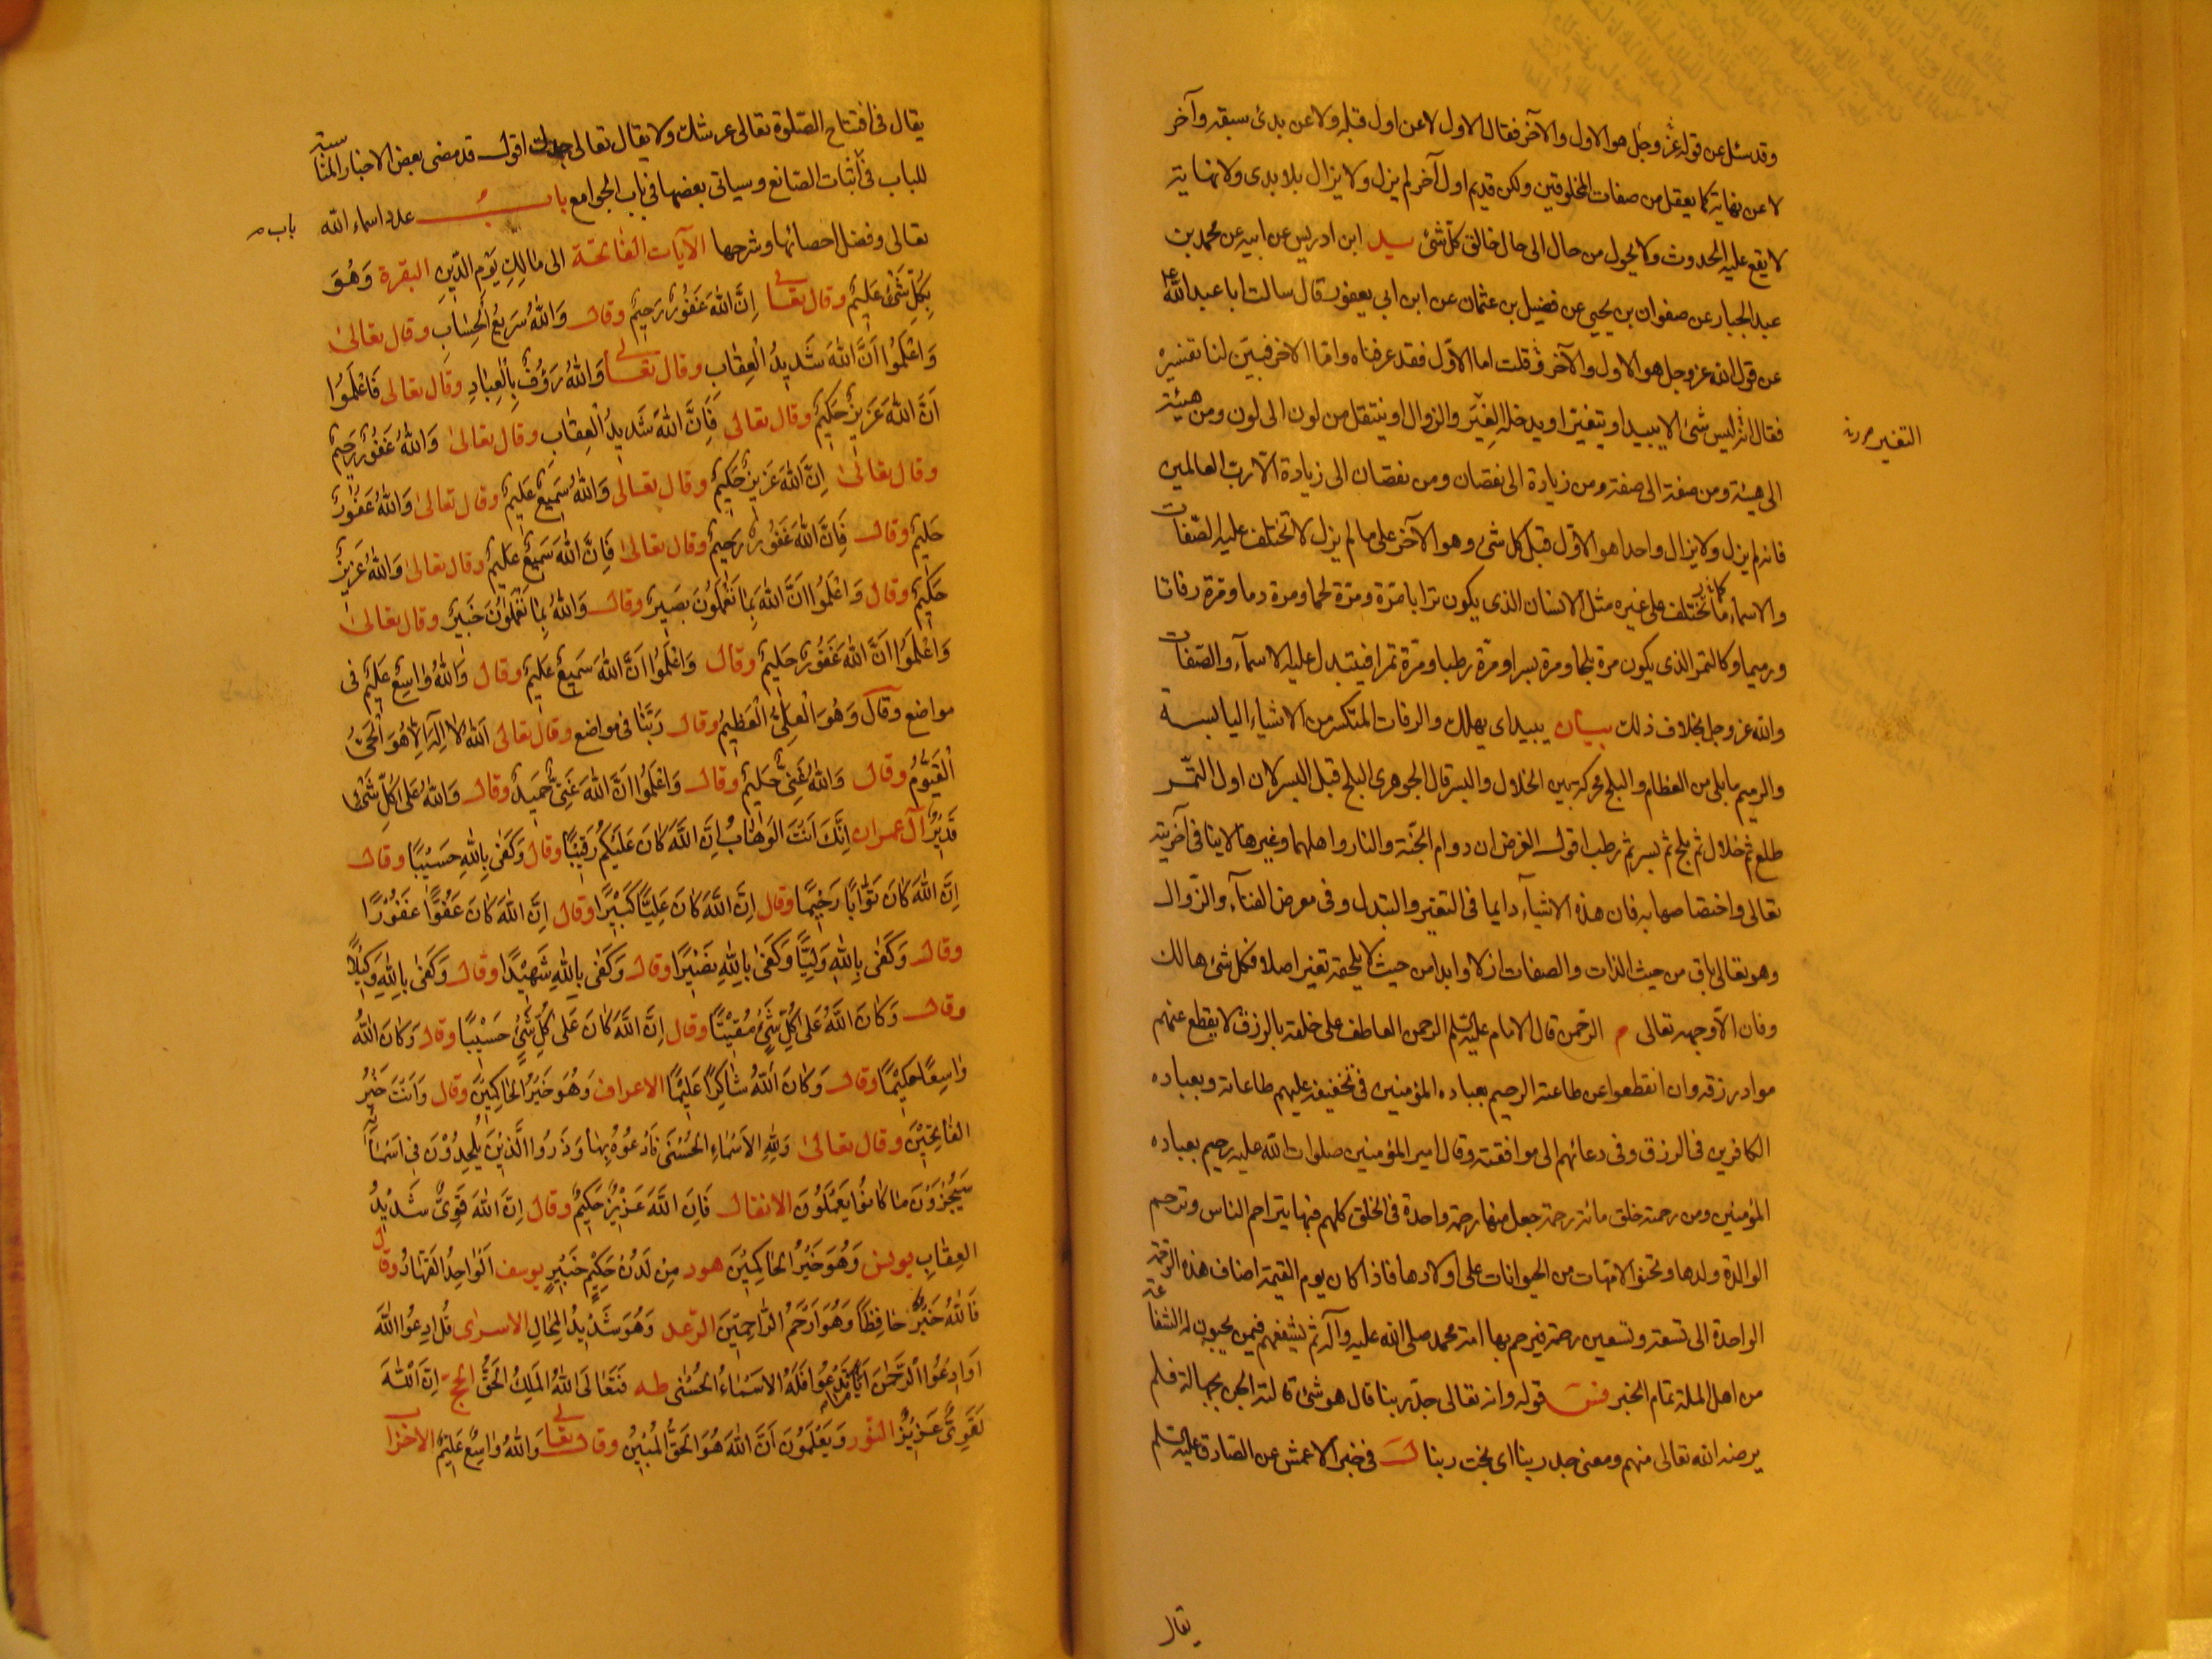 وقد سئل عن قوله عز وجل هو الاول والآخر فقال الاول لا عن اول قبله ولا عن بدئ سبقه وآخر
لا عن نهاية كما يعقل من صفات المخلوقين ولكن قديم اول آخر لم يزل ولا يزال بلا بدى ولا نهاية
لا يقع عليه الحدوث ولا يحول من حال الى حال خالق كل شئ يد ابن ادريس عن ابيه عن محمد بن
عبد الجبار عن صفوان بن يحيى عن فضيل بن عثمان عن ابن ابى يعفور قال سالت ابا عبد الله ع
عن قول الله عز وجل هو الاول والآخر وقلت اما الاول فقد عرفناه واما الاخر فبين لنا تفسيره
فقال انه ليس شئ الا يبيد او يتغير او يدخله الغير والزوال او ينتقل من لون الى لون ومن هيئة
التغير
الى هيئة ومن صفة الى صفة ومن زيادة الى نقصان ومن نقصان الى زيادة الا رب العالمين
فانه لم يزل ولا يزال واحدا هو الاول قبل كل شئ وهو الآخر على ما لم يزل لا تختلف عليه الصفات
والاسماء ما تختلف على غيره مثل الانسان الذى يكون ترابا مرة ومرة لحما ومرة دما ومرة رفاتا
ورميما وكالتمر الذى يكون مرة بلحا ومرة بسرا ومرة رطبا ومرة تمرا فيتبدل عليه الاسماء والصفات
والله عز وجل بخلاف ذلك بيان يبيد اى يهلك والرفات المتكسر من الاشياء اليابسة
والرميم ما بلى من العظام والبلح محركة بين الخلال والبسر قال الجوهرى البلح قبل البسر لان اول التمر
طلع ثم خلال ثم بلح ثم بسر ثم رطب اقول الغرض ان دوام الجنة والنار واهلهما وغيرها لا ينافى آخريته
تعالى واختصاصها به فان هذه الاشياء دايما فى التغير والتبدل وفى معرض الفناء والزوال
وهو تعالى باق من حيث الذات والصفات ازلا وابدا من حيث لا يلحقه تغير اصلا فكل شئ هالك
وفان الا وجهه تعالى م الرحمن قال الامام عليه السلم الرحمن العاطف على خلقه بالرزق لا يقطع عنهم
مواد رزقه وان انقطعوا عن طاعته الرحيم بعباده المؤمنين فى تخفيفه عليهم طاعاته وبعباده
الكافرين فى الرزق وفى دعائهم الى موافقته وقال امير المؤمنين صلوات الله عليه رحيم بعباده
المؤمنين ومن رحمته خلق مائة رحمة جعل منها رحمة واحدة فى الخلق كلهم فبها يتراحم الناس وترحم
الوالدة ولدها وتحنو الامهات من الحيوانات على اولادها فاذا كان يوم القيمة اضاف هذه الرحمة
الواحدة الى تسعة وتسعين رحمة فيرحم بها امة محمد صلى الله عليه وآله ثم يشفعهم فيمن يحبون له الشفاعة
من اهل الملة تمام الخبر فس قوله وانه تعالى جد ربنا قال هو شئ قالته الجن بجهالة فلم
يرضه الله تعالى منهم ومعنى جد ربنا اى بخت ربنا ل فى خبر الاعمش عن الصادق عليه السلم
يقال
يقال فى افتتاح الصلوة تعالى عرشك ولا يقال تعالى جدك اقول قد مضى بعض الاخبار المناسبة
للباب فى اثبات الصانع وسياتى بعضها فى باب الجوامع باب عدد اسماء الله
باب
تعالى وفضل احصائها وشرحها الآيات الفاتحة الى مالِكِ يَوْمِ الدّينِ البقرة وَهُوَ
بِكُلِّ شَئٍ عَليمٌ وقال تعالى اِنَّ اللهَ غَفُورٌ رَحيمٌ وقال وَاللهُ سَريعُ الْحِسابِ وقال تعالىٰ
وَاعْلَمُوا اَنَّ اللهَ شَديدُ الْعِقابِ وقال تعالى وَاللهُ رَؤُفٌ بِالْعِبادِ وقال تعالى فَاعْلَمُوا
اَنَّ اللهَ عَزيزٌ حَكيمٌ وقال تعالى فَاِنَّ اللهَ شَديدُ الْعِقابِ وقال تعالىٰ وَاللهُ غَفُورٌ رَحيمٌ
وقال تعالىٰ اِنَّ اللهَ عَزيزٌ حَكيمٌ وقال تعالى وَاللهُ سَميعٌ عَليمٌ وقال تعالىٰ وَاللهُ غَفُورٌ
حَليمٌ وقال فَاِنَّ اللهَ غَفُورٌ رَحيمٌ وقال تعالىٰ فَاِنَّ اللهَ سَميعٌ عَليمٌ وقال تعالىٰ وَاللهُ عَزيزٌ
حَكيمٌ وقال وَاعْلَمُوا اَنَّ اللهَ بِما تَعْمَلُونَ بَصيرٌ وقال وَاللهُ بِما تَعْمَلُونَ خَبيرٌ وقال تعالىٰ
وَاعْلَمُوا اَنَّ اللهَ غَفُورٌ حَليمٌ وقال وَاعْلَمُوا اَنَّ اللهَ سَميعٌ عَليمٌ وقال وَاللهُ واسِعٌ عَليمٌ فى
مواضع وقال وَهُوَ الْعَلِىُّ الْعَظيمُ وقال رَبَّنا فى مواضع وقال تعالى اَللهُ لا اِلهَ اِلّا هُوَ الْحَىُّ
الْقَيُّومُ وقال وَاللهُ غَنِىٌّ حَليمٌ وقال وَاعْلَمُوا اَنَّ اللهَ غَنِىٌّ حَميدٌ وقال وَاللهُ عَلى كُلِّ شَئٍ
قَديرٌ آل عمران اِنَّكَ اَنْتَ الوَهّابُ اِنَّ اللهَ كانَ عَلَيْكُمْ رَقيبًا وقال وَكَفى بِاللهِ حَسيبًا وقال
اِنَّ اللهَ كانَ تَوّابًا رَحيمًا وقال اِنَّ اللهَ كانَ عَلِيًّا كَبيرًا وقال اِنَّ اللهَ كانَ عَفُوًّا غَفُورًا
وقال وَكَفى بِاللهِ وَلِيًّا وَكَفى بِاللهِ نَصيرًا وقال وَكَفى بِاللهِ شَهيدًا وقال وَكَفى بِاللهِ وَكيلًا
وقال وَكانَ اللهُ عَلى كُلِّ شَئٍ مُقيتًا وقال اِنَّ اللهَ كانَ عَلى كُلِّ شَئٍ حَسيبًا وقال وَكانَ اللهُ
واسِعًا حَكيمًا وقال وَكانَ اللهُ شاكِرًا عَليمًا الاعراف وَهُوَ خَيْرُ الحاكِمينَ وقال وَاَنْتَ خَيْرُ
الفاتِحينَ وقال تعالىٰ وَلِلّهِ الاَسْماءُ الحُسْنى فَادْعُوهُ بِها وَذَرُوا الَّذينَ يُلْحِدُونَ فى اَسْمائِه
سَيُجْزَوْنَ ما كانُوا يَعْمَلُونَ الانفال فَاِنَّ اللهَ عَزيزٌ حَكيمٌ وقال اِنَّ اللهَ قَوِىٌّ شَديدُ
العِقابِ يونس وَهُوَ خَيْرُ الحاكِمينَ هود مِن لَدُنْ حَكيمٍ خَبيرٍ يوسف اَلْواحِدُ القَهّارُ وقال
فَاللهُ خَيْرٌ حافِظًا وَهُوَ اَرْحَمُ الرّاحِمينَ الرعد وَهُوَ شَديدُ المِحالِ الاسرى قُلِ ادْعُوا اللهَ
اَوِ ادْعُوا الرَّحْمنَ اَيًّا ما تَدْعُوا فَلَهُ الاَسْماءُ الحُسْنى طه فَتَعالَى اللهُ المَلِكُ الحَقُّ الحج اِنَّ اللهَ
لَقَوِىٌّ عَزيزٌ النور وَيَعْلَمُونَ اَنَّ اللهَ هُوَ الحَقُّ المُبينُ وقال تعالى وَاللهُ واسِعٌ عَليمٌ الاحزاب